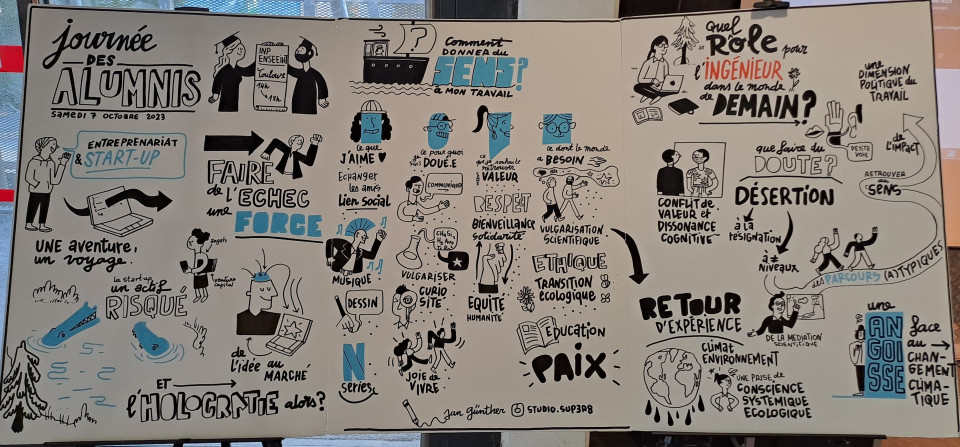 journée
DES
ALUMNIS
SAMEDI 7 OCTOBRE 2023
INP
ENSEEIHT
Toulouse
14h
→ 18h
ENTREPRENARIAT
& START-UP
FAIRE
de L'ECHEC
une
FORCE
UNE AVENTURE,
UN VOYAGE.
la start-up
un actif
RISQUÉ
angels
venture
capital
de L'IDÉE AU
MARCHÉ
ET
l'HOLOCRATIE alors?
Comment
DONNER du
SENS?
à MON TRAVAIL
ce que
J'AIME
Echanger
les amis
Lien social
MUSIQUE
DESSIN
N
séries
ce pour quoi
je suis
DOUÉ.E
COMMUNIQUER
VULGARISER
CURIO
SITÉ
JOIE de
VIVRE
VALEUR
RESPECT
BIENVEILLANCE
solidarité
EQUITÉ
HUMANITÉ
ce dont le monde
a BESOIN
VULGARISATION
SCIENTIFIQUE
ETHIQUE
TRANSITION
écologique
Education
PAIX
jan günther STUDIO.SUP3R8
Quel
RÔLE pour
l'INGÉNIEUR
dans le monde
de DEMAIN?
CONFLIT de
VALEUR et
DISSONANCE
COGNITIVE
que faire du
DOUTE?
DÉSERTION
à la
RÉSIGNATION
à ≠
NIVEAUX
UNE
DIMENSION
POLITIQUE du
TRAVAIL
PETITE
VOIX
de
L'IMPACT
RETROUVER du
SENS
des PARCOURS (A)TYPIQUES
DE LA MÉDIATION
SCIENTIFIQUE
RETOUR
D'EXPÉRIENCE
CLIMAT
ENVIRONNEMENT
UNE PRISE de
CONSCIENCE
SYSTEMIQUE
ECOLOGIQUE
une
ANGOISSE
face
au
CHAN-
GEMENT
CLIMA-
TIQUE